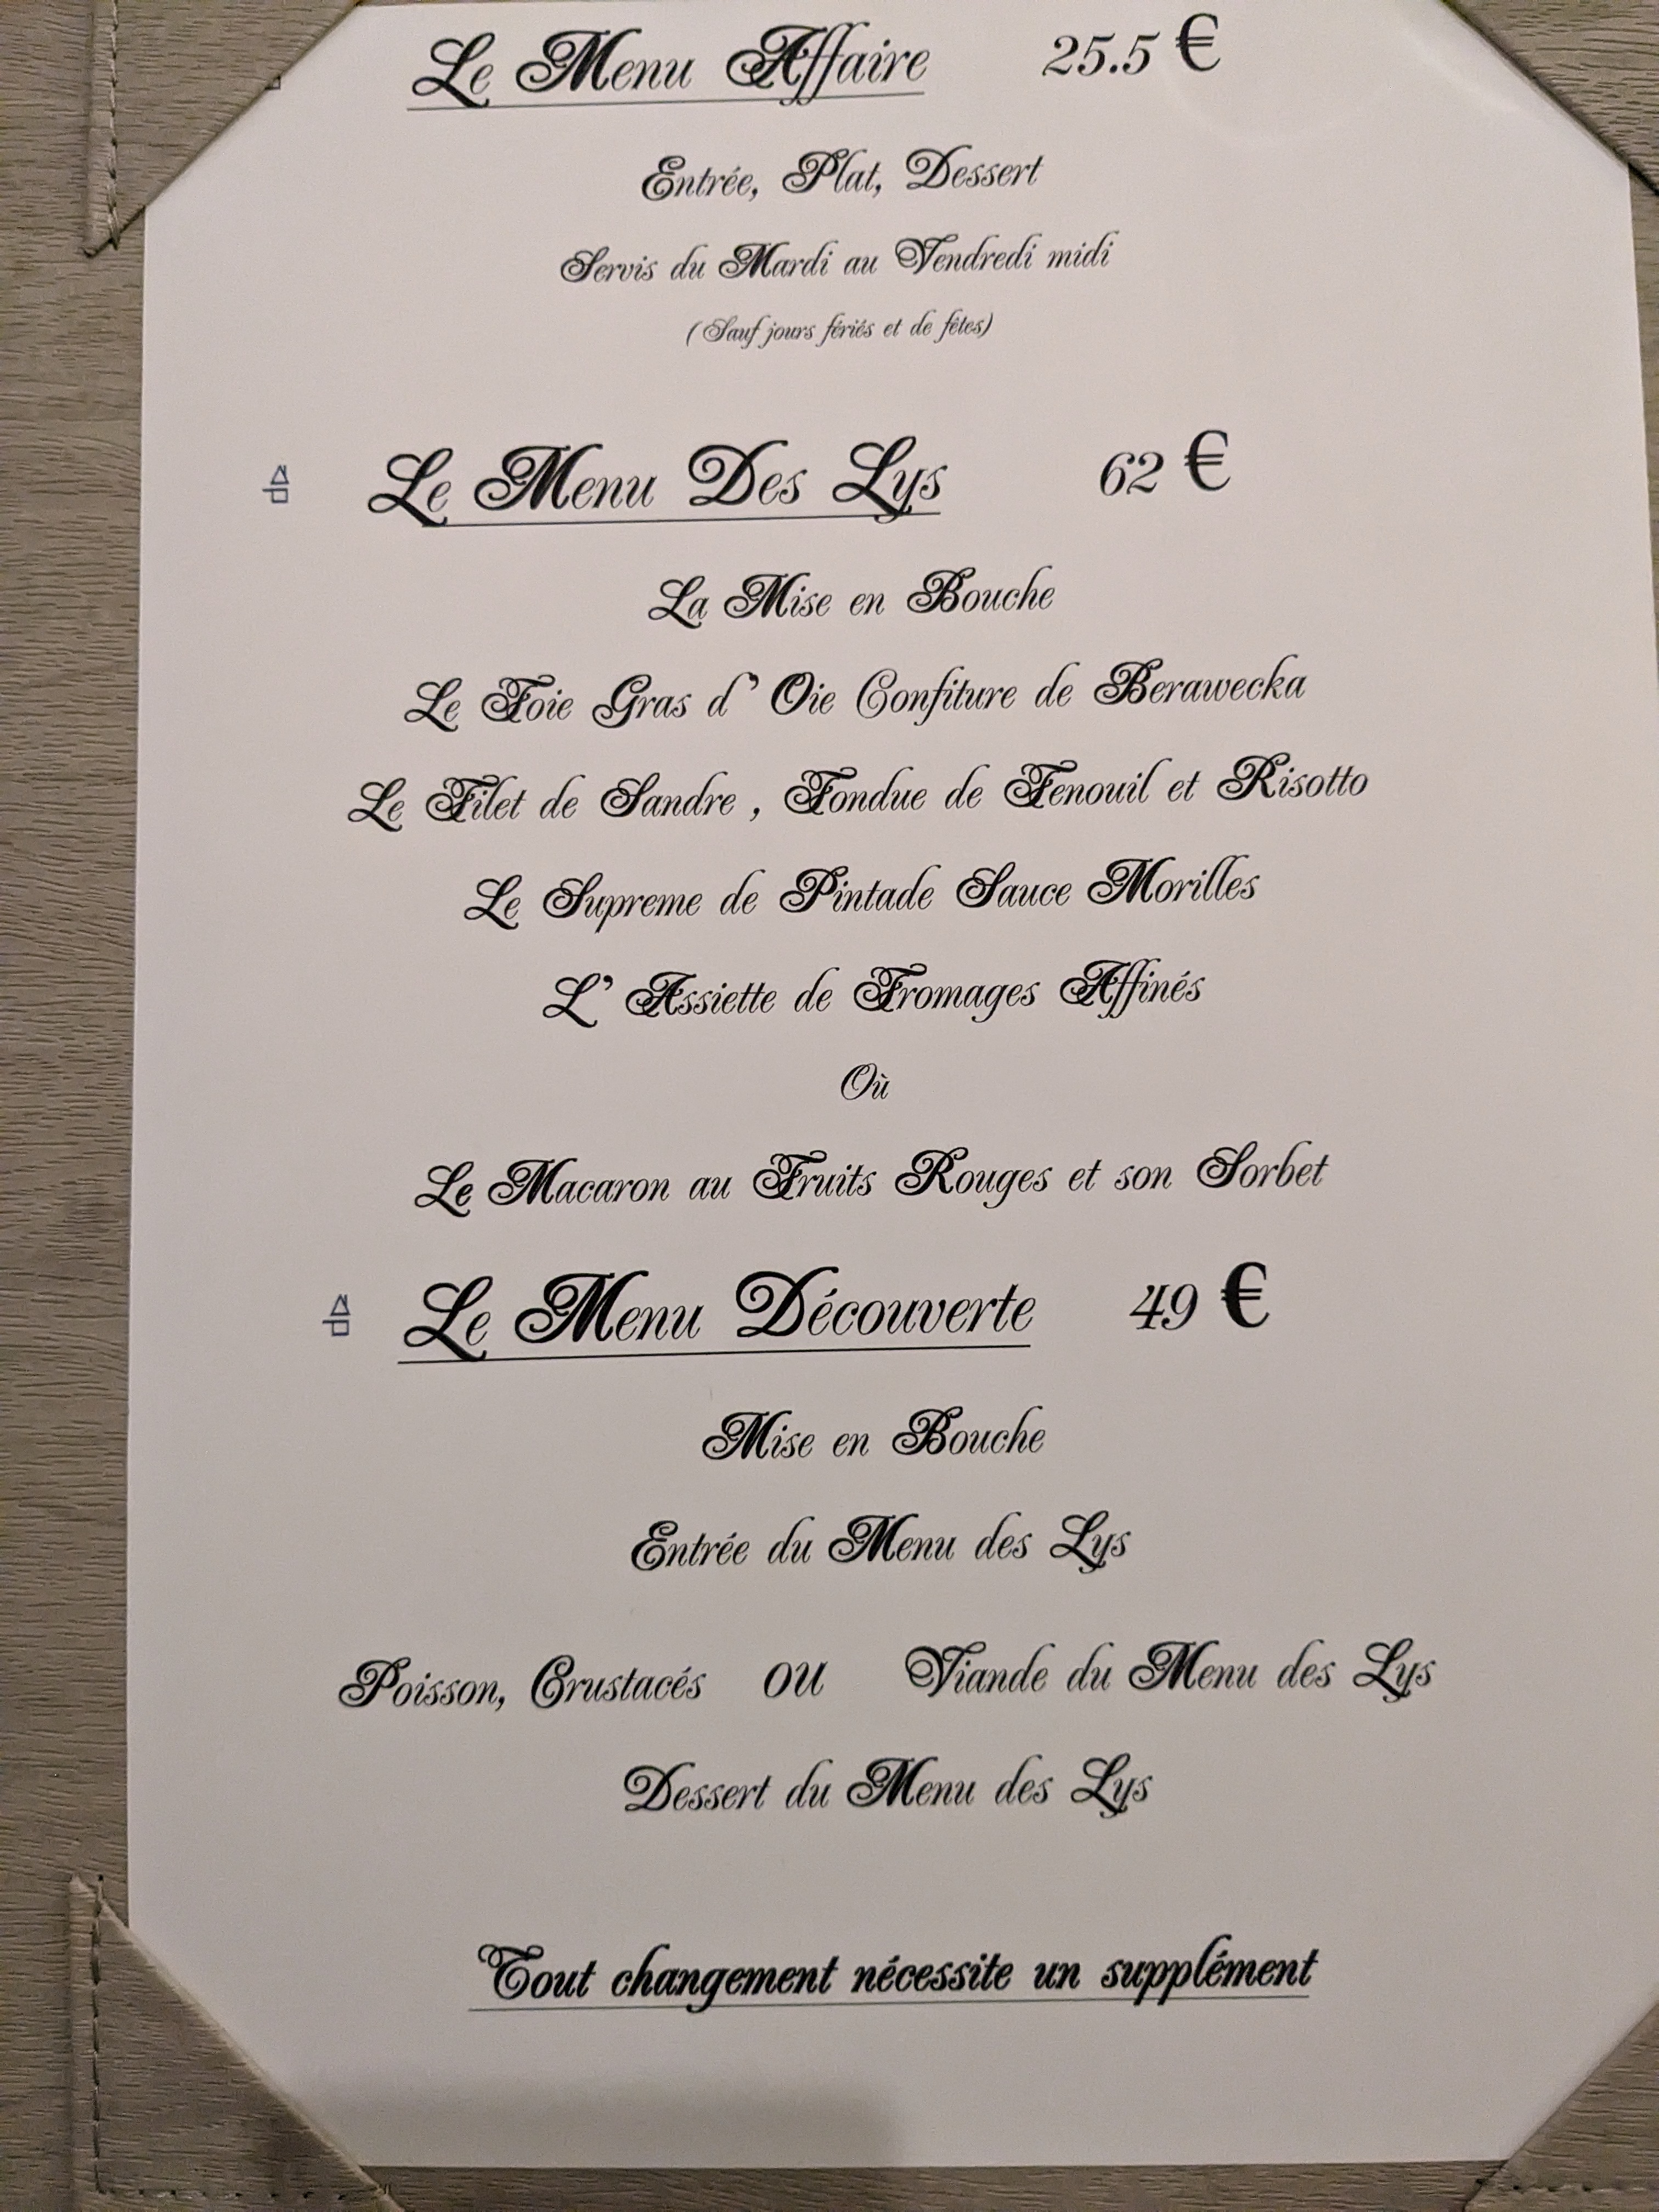 Le Menu Affaire 25.5 €
Entrée, Plat, Dessert
Servis du Mardi au Vendredi midi
(Sauf jours fériés et de fêtes)
Le Menu Des Lys 62 €
La Mise en Bouche
Le Foie Gras d' Oie Confiture de Berawecka
Le Filet de Sandre , Fondue de Fenouil et Risotto
Le Supreme de Pintade Sauce Morilles
L' Assiette de Fromages Affinés
Où
Le Macaron au Fruits Rouges et son Sorbet
Le Menu Découverte 49 €
Mise en Bouche
Entrée du Menu des Lys
Poisson, Crustacés ou Viande du Menu des Lys
Dessert du Menu des Lys
Tout changement nécessite un supplément